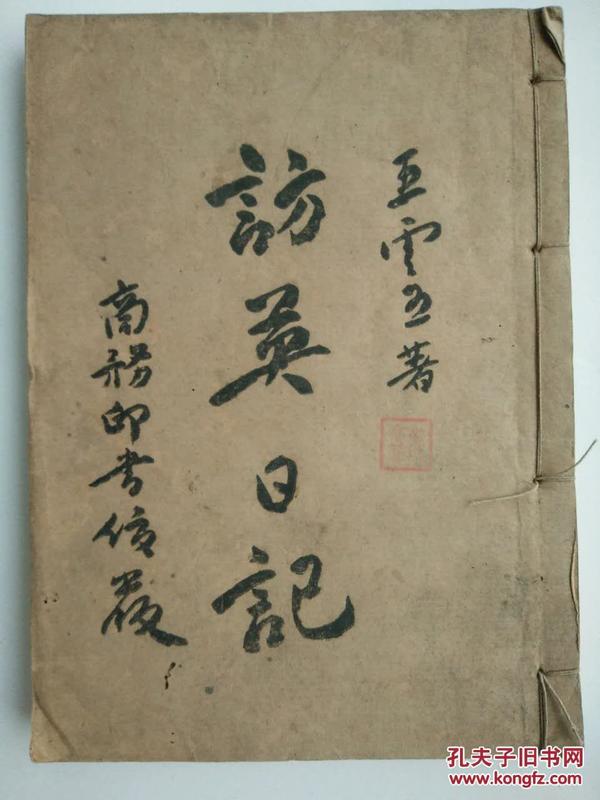 王雲五著
訪英日記
商務印書
孔夫子旧书网
www.kongfz.com